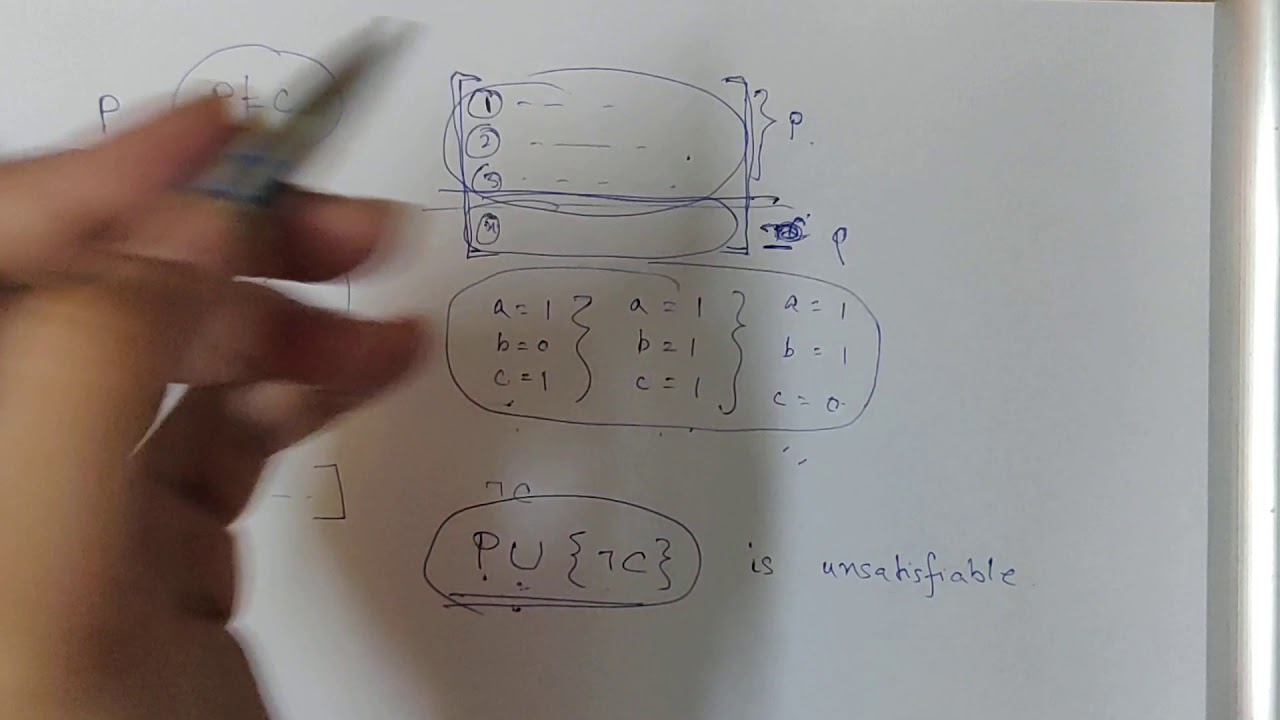 P P ⊨ C
① - — -
② - — - P.
③ - - -
④ P
a = 1 a = 1 a = 1
b = 0 b = 1 b = 1
c = 1 c = 1 c = 0
¬C
P ∪ {¬C} is unsatisfiable